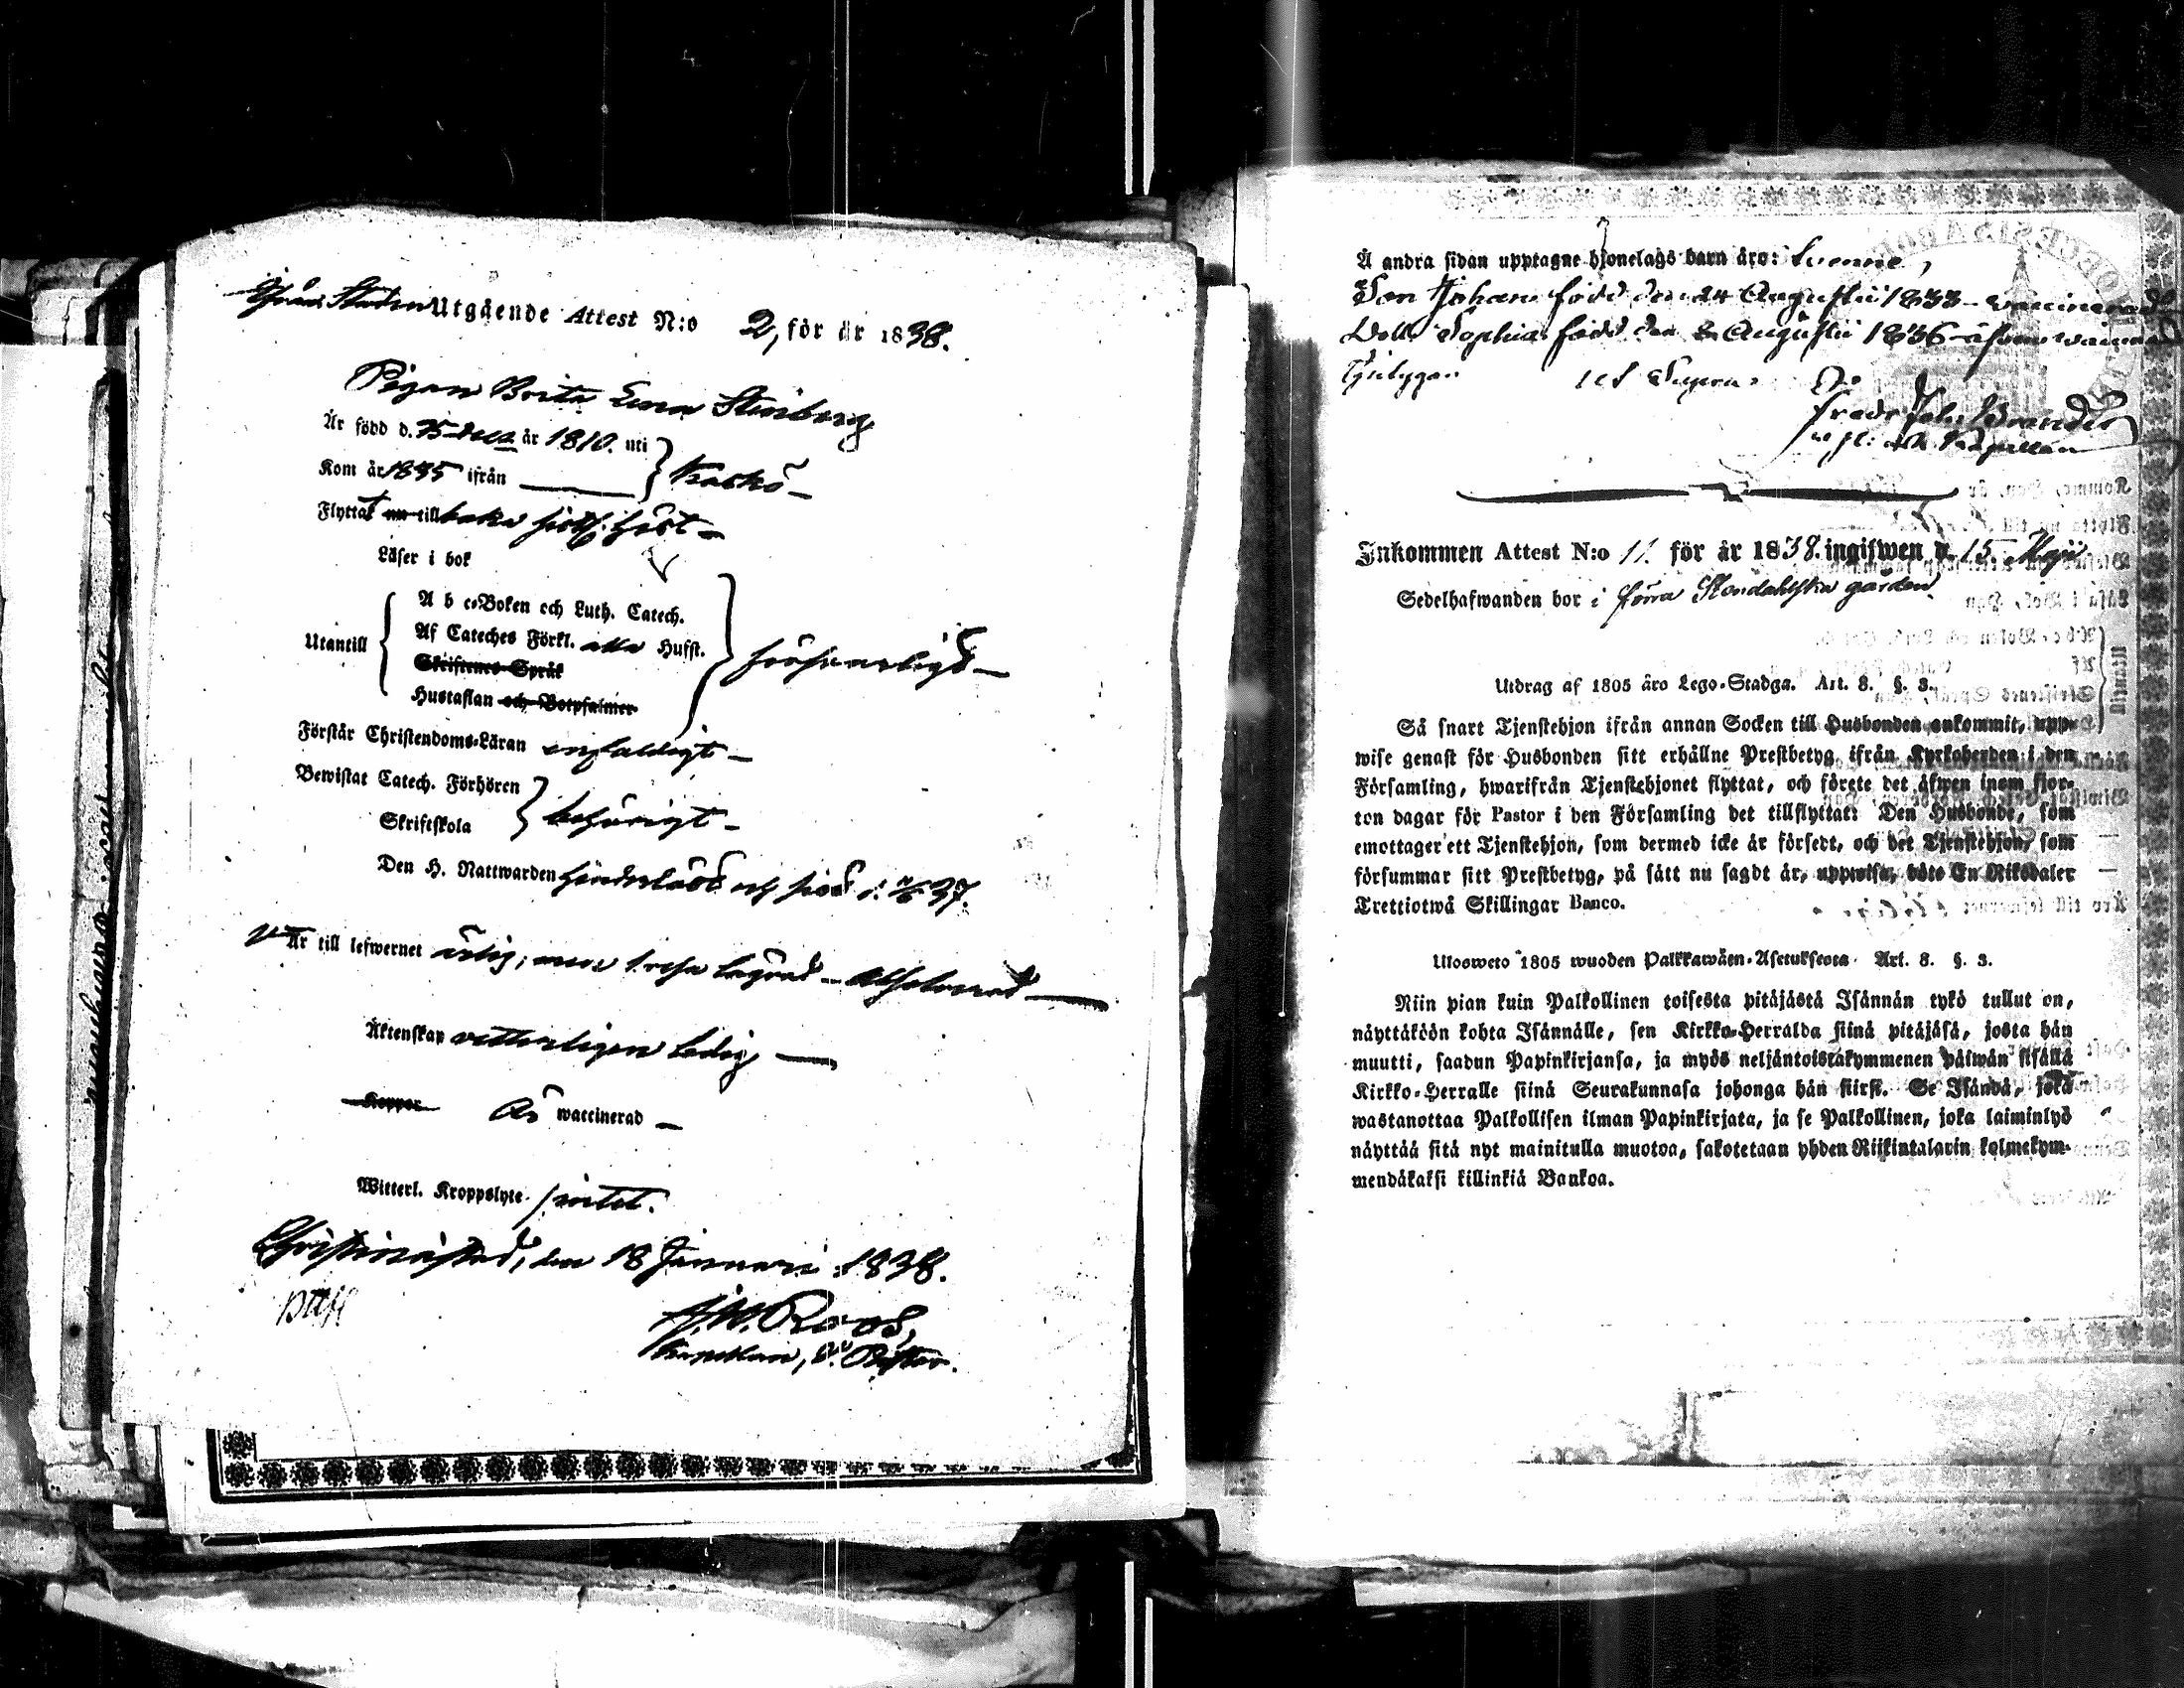 från Staden Utgående Attest N:o 2, för år 1838.
Pigan Brita Lena Stenberg
Är född d. 25 Dec. år 1810. uti
Kom år 1835 ifrån
Kaskö
Flyttat nu till baka sistl. höst
Läser i bok
Utantill
A b c-Boken och Luth. Catech.
Af Cateches Förkl. alla Hufst.
Skriftenes Språk
Hustaflan och Botpsalmer
försvarligt
Förstår Christendoms-Läran enfaldigt
Bewistat Catech. Förhören
Skriftskola
behörigt
Den H. Nattwarden
och sist d. 37.
Är till lefwernet ärlig, men 1 resa lägrad absolverad
Äktenskap vetterligen ledig
Koppor Är waccinerad
Witterl. Kroppslyte intet.
Christinæstad, den 18 Januari 1838.
A.W. Roos,
Capellan, V. Pastor.
Å andra sidan upptagne hjonelags barn äro: tvenne,
Son Johan född den 24 Augustii 1833 - vaccinerad
Dott. Sophia född den 2 Augustii 1836 - äfven vaccinerad
Ut Supra
Fredr. Joh. Brander
Inkommen Attest N:o 11. för år 1838. ingifwen d. 15 Maji
Sedelhafwanden bor i förra gården
Utdrag af 1805 års Lego-Stadga. Art. 8. §. 3.
Så snart Tjenstehjon ifrån annan Socken till Husbonden ankommit, upp-
wise genast för Husbonden sitt erhållne Prestbetyg ifrån Kyrkoherden i den
Församling, hwarifrån Tjenstehjonet flyttat, och förete det äfwen inom fjor-
ton dagar för Pastor i den Församling det tillflyttat: Den Husbonde, som
emottager ett Tjenstehjon, som dermed icke är försedt, och det Tjenstehjon, som
försummar sitt Prestbetyg, på sätt nu sagdt är, uppwisa, böte En Riksdaler
Trettiotwå Skillingar Banco.
Ulosweto 1805 wuoden Palkkawäen-Asetuksesta. Art. 8. §. 3.
Niin pian kuin Palkollinen toisesta pitäjästä Isännän tykö tullut on,
näyttäköön kohta Isännälle, sen Kirkko-Herralda siinä pitäjäsä, josta hän
muutti, saadun Papinkirjansa, ja myös neljäntoistakymmenen päiwän sisällä
Kirkko-Herralle siinä Seurakunnasa johonga hän siirsi. Se Isändä, joka
wastanottaa Palkollisen ilman Papinkirjata, ja se Palkollinen, joka laiminlyö
näyttää sitä nyt mainitulla muotoa, sakotetaan yhden Riikintalarin kolmekym-
mendäkaksi killinkiä Bankoa.